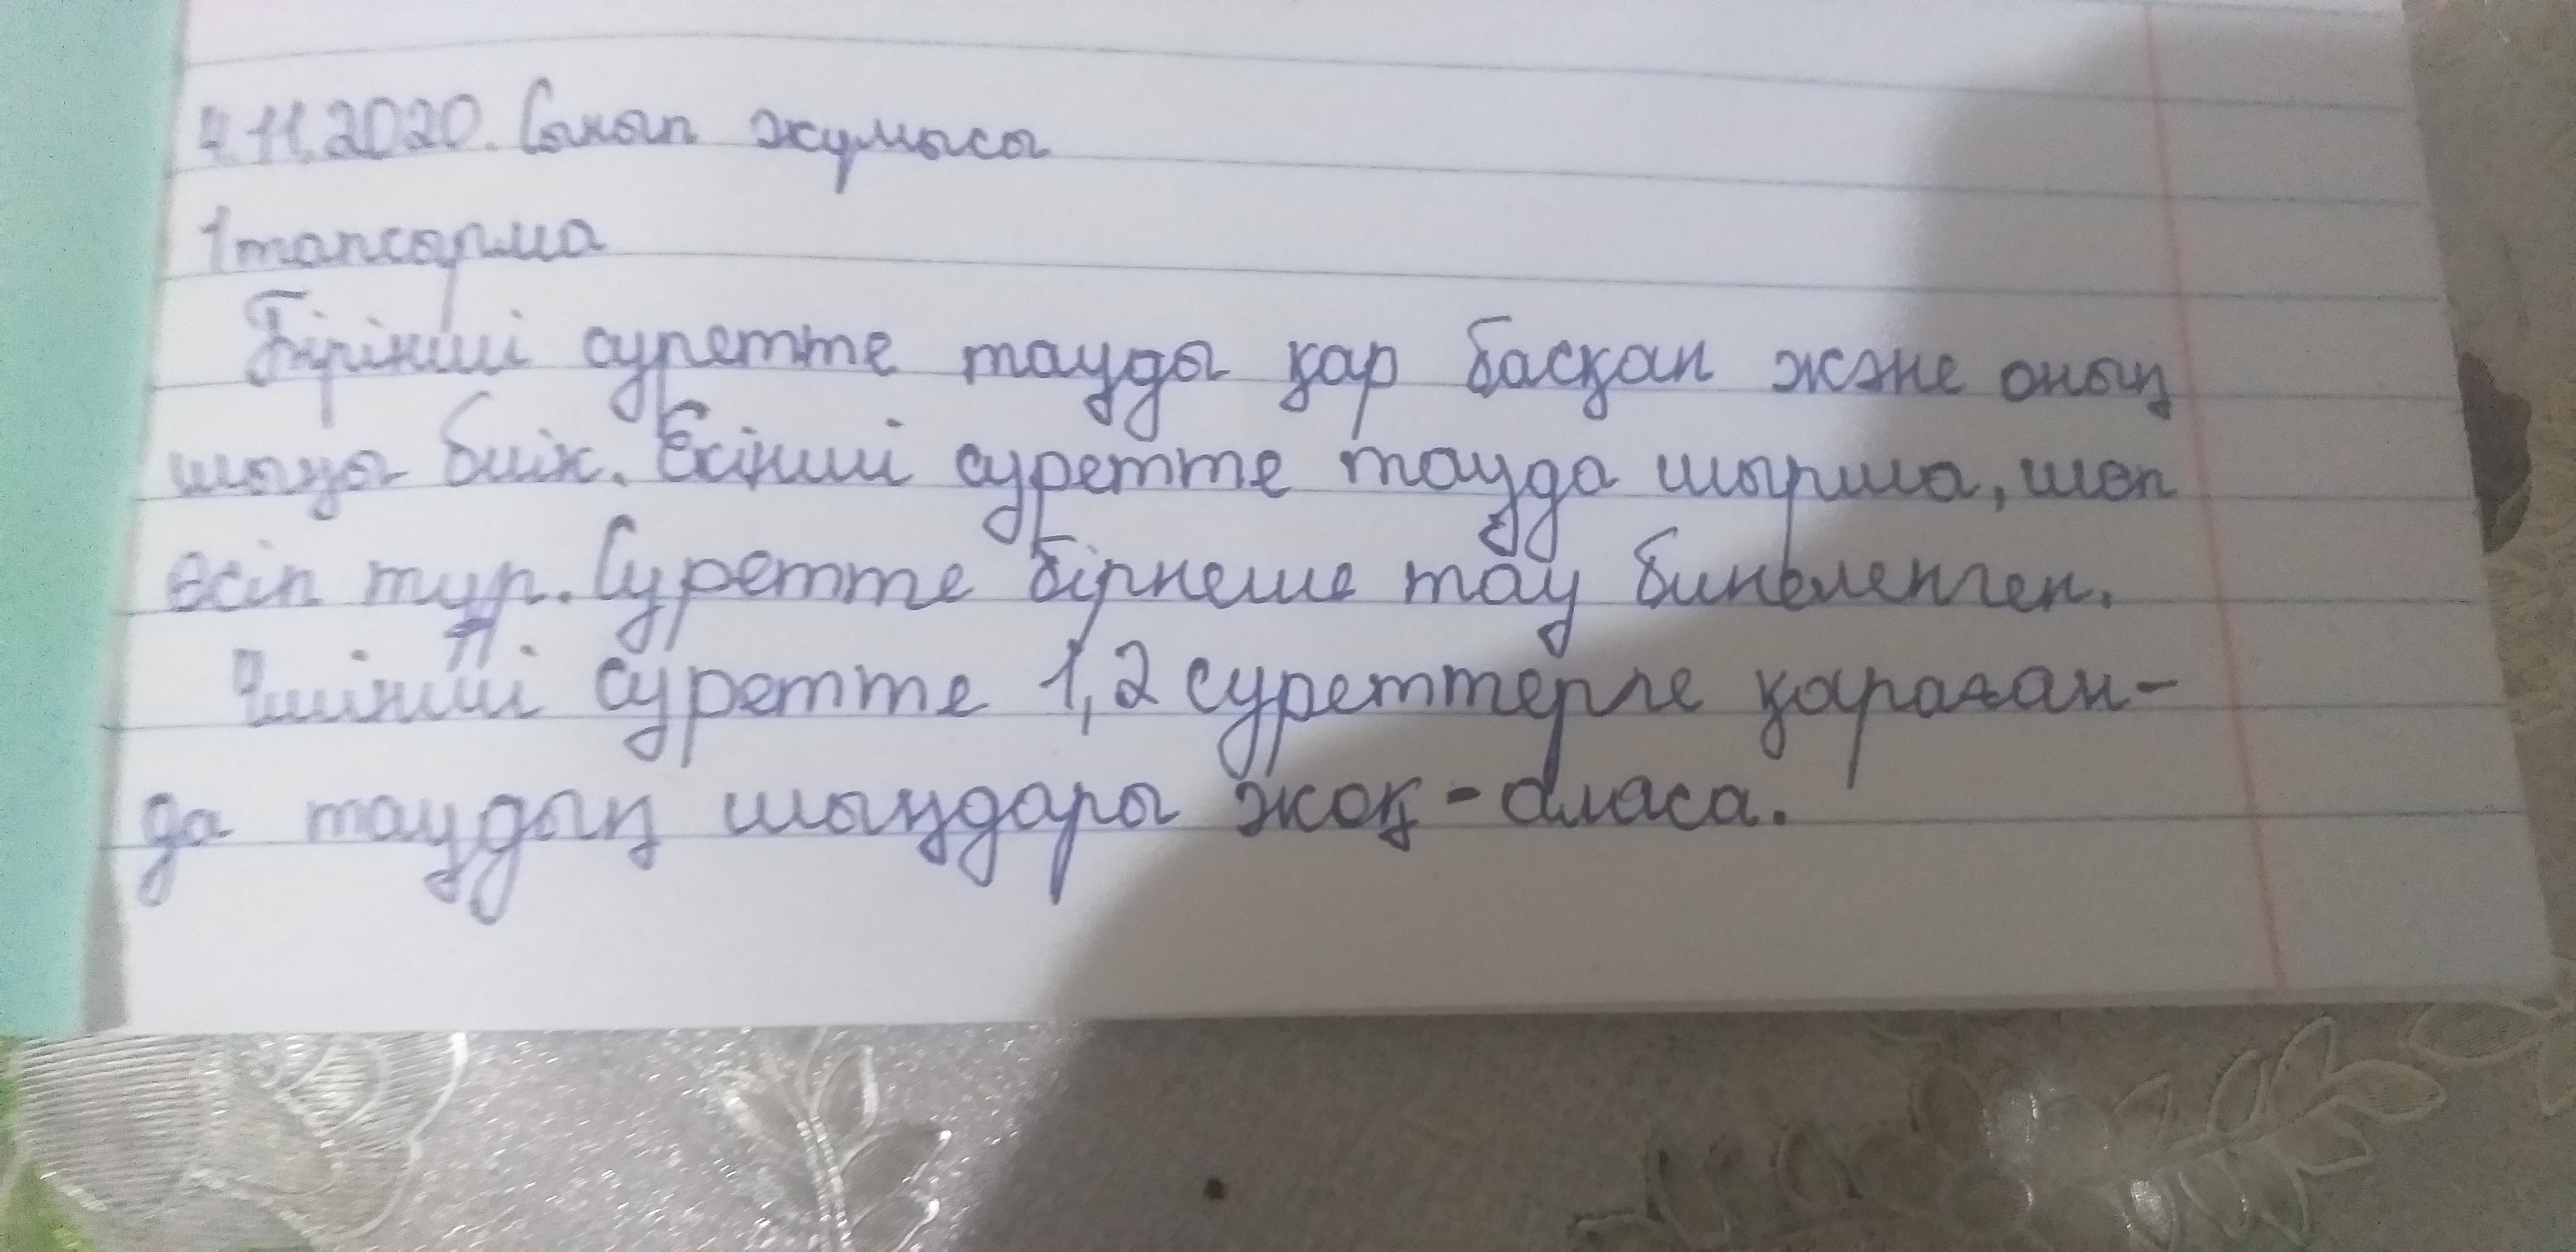 4.11.2020. Сынып жұмысы
1 тапсырма
Бірінші суретте тауды қар басқан және оның
шыңы биік. Екінші суретте тауда шырша, шөп
өсіп тұр. Суретте бірнеше тау бинеленген.
Үшінші суретте 1,2 суреттерге қараған-
да таудың шыңдары жоқ - аласа.